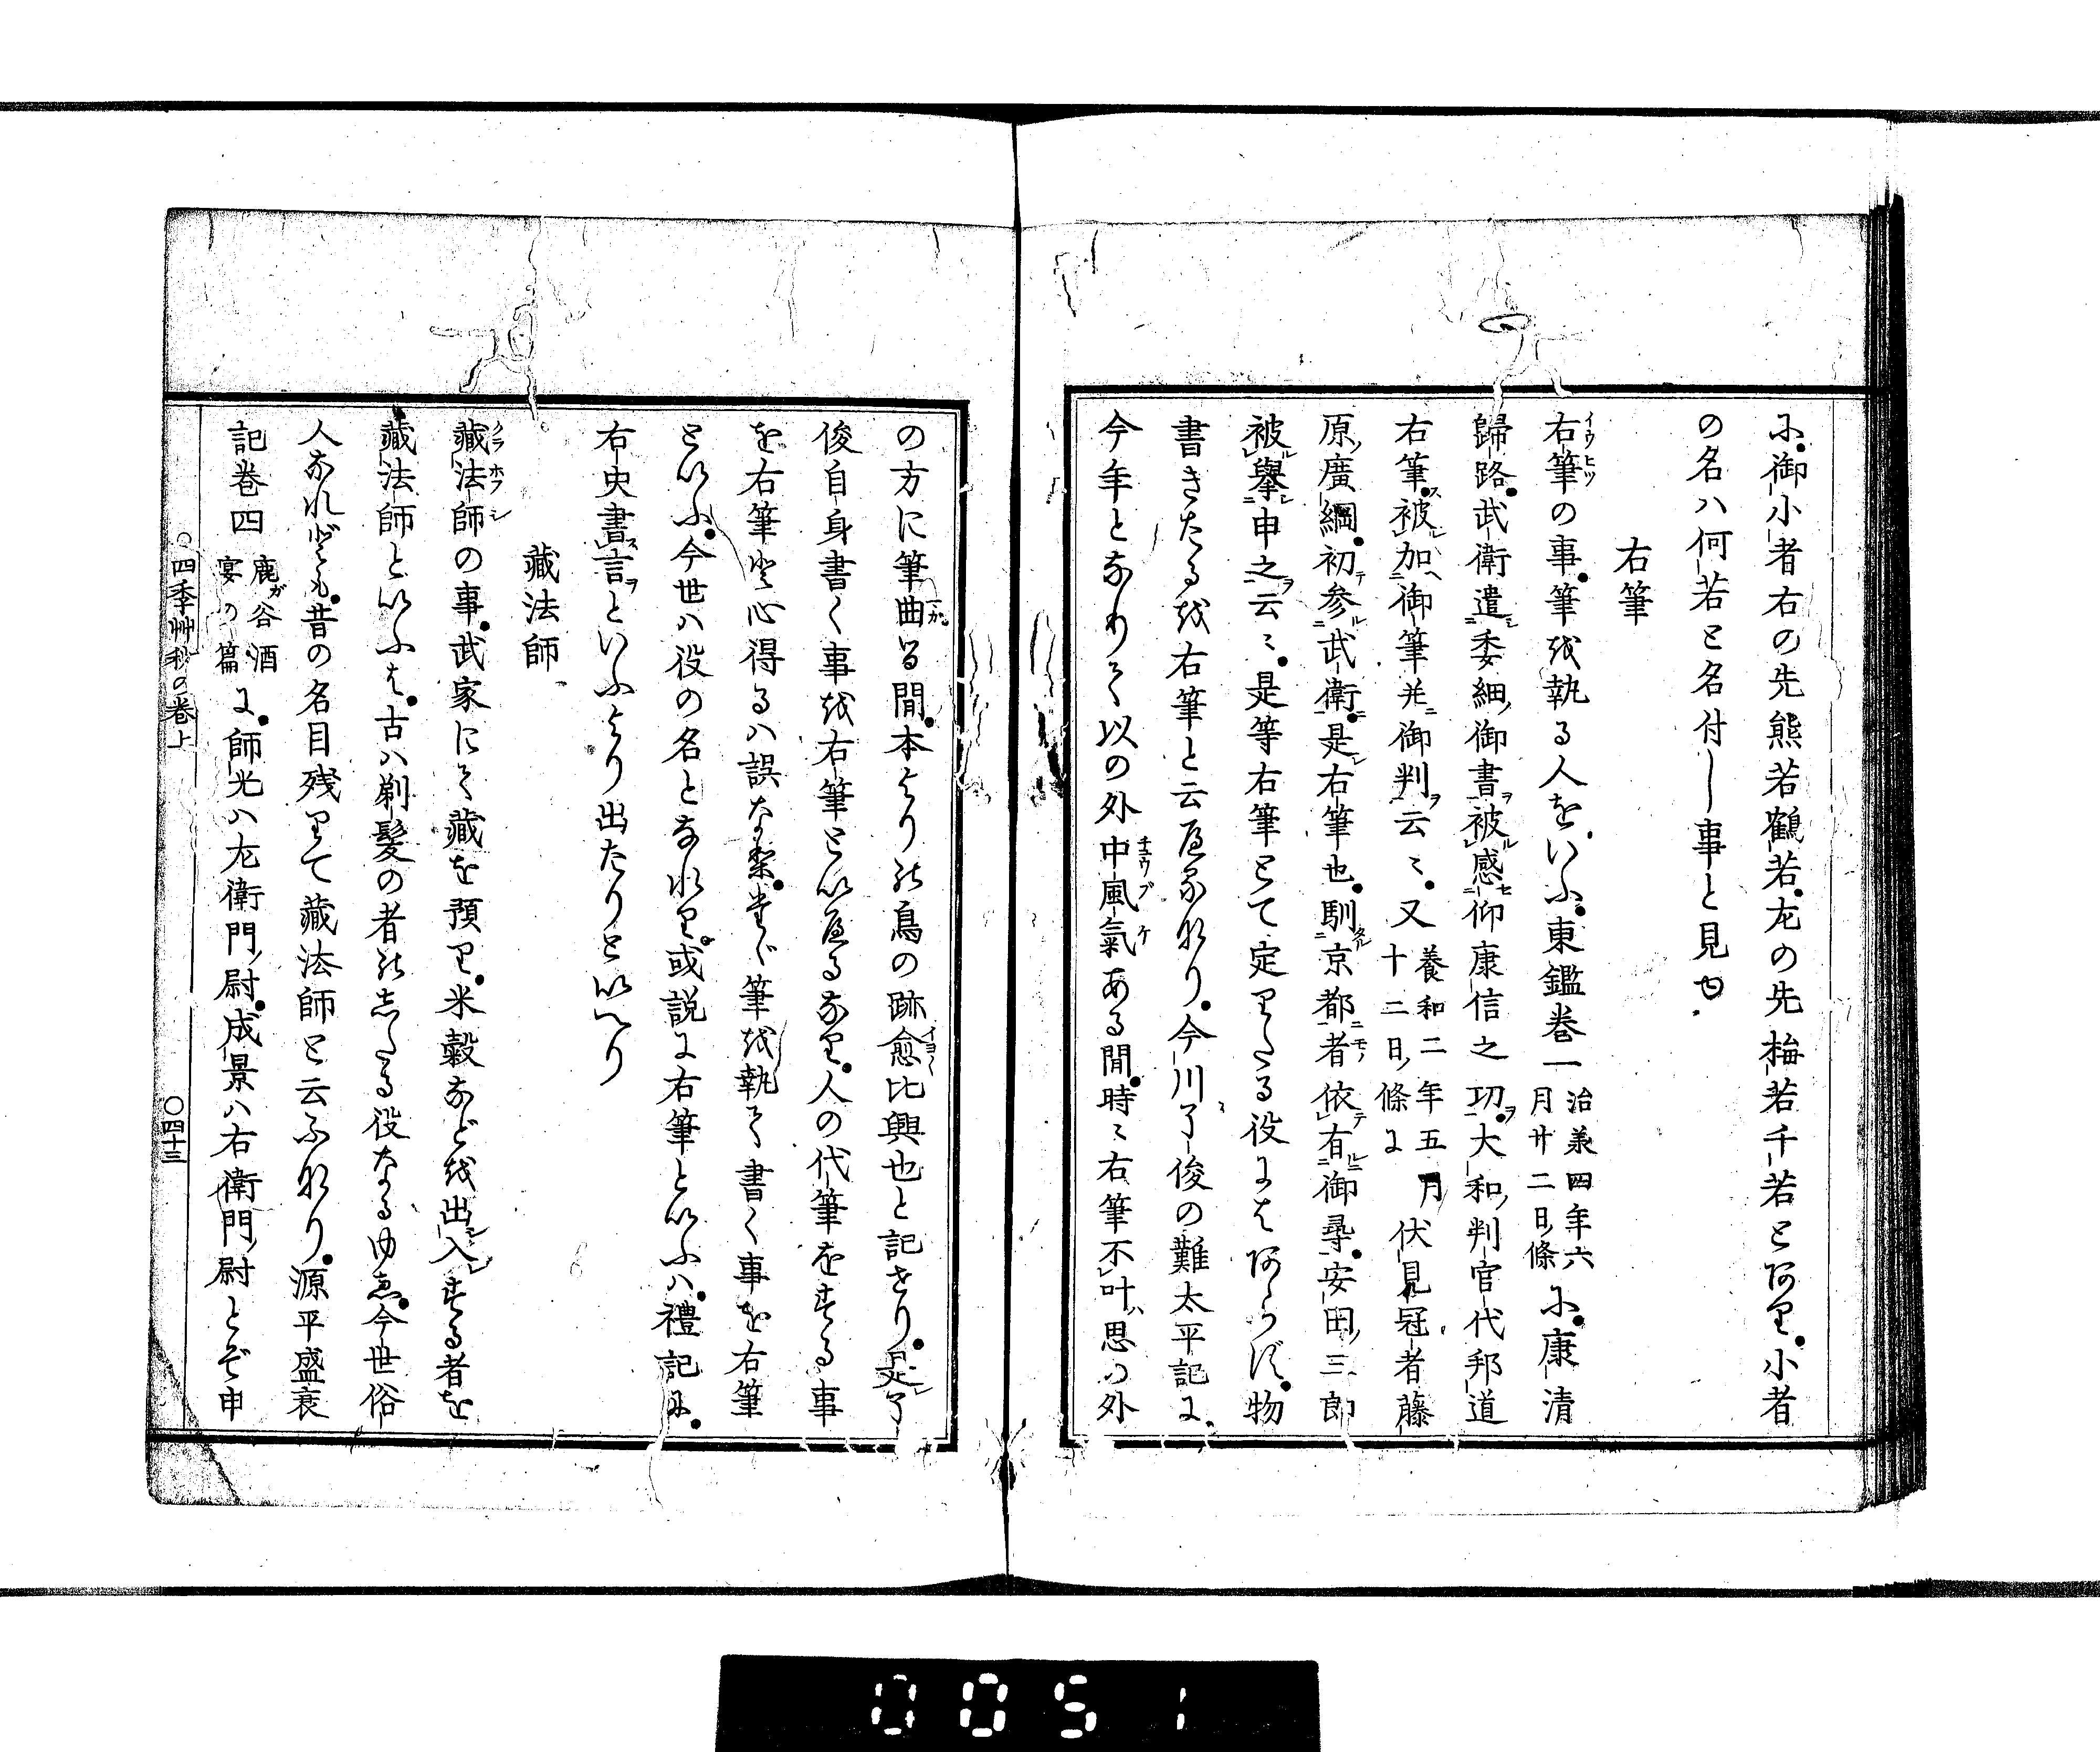 に御小者右の先熊若鶴若左の先梅若千若とあり小者
の名ハ何若と名付し事と見ゆ
右筆
右筆の事筆を執る人をいふ東鑑巻一治承四年六月廿二日條に康清
歸路武衛遣委細御書被感仰康信之功大和判官代邦道
右筆被加御筆并御判云々又養和二年五月十二日條に伏見冠者藤
原廣綱初参武衛是右筆也馴京都者依有御尋安田三郎
被擧申之云々是等右筆とて定りたる役にはあらず物
書きたるを右筆と云へるなり今川了俊の難太平記に
今年となりて以の外中風氣ある間時々右筆不叶思の外
の方に筆曲る間本よりの鳥の跡愈比興也と記せり是了
俊自身書く事を右筆といへるなり人の代筆をする事
を右筆と心得るハ誤なり我筆を執て書く事を右筆
といふ今世ハ役の名となれり或説に右筆といふハ禮記に
右史書言といふより出たりといへり
藏法師
藏法師の事武家にて藏を預り米穀などを出入する者を
藏法師といふは古ハ剃髪の者のしたる役なるゆゑ今世俗
人なれども昔の名目残りて藏法師と云ふなり源平盛衰
記巻四鹿谷酒宴の篇に師光ハ左衛門尉成景ハ右衛門尉とぞ申
四季艸秋の巻上
○四十三
0051